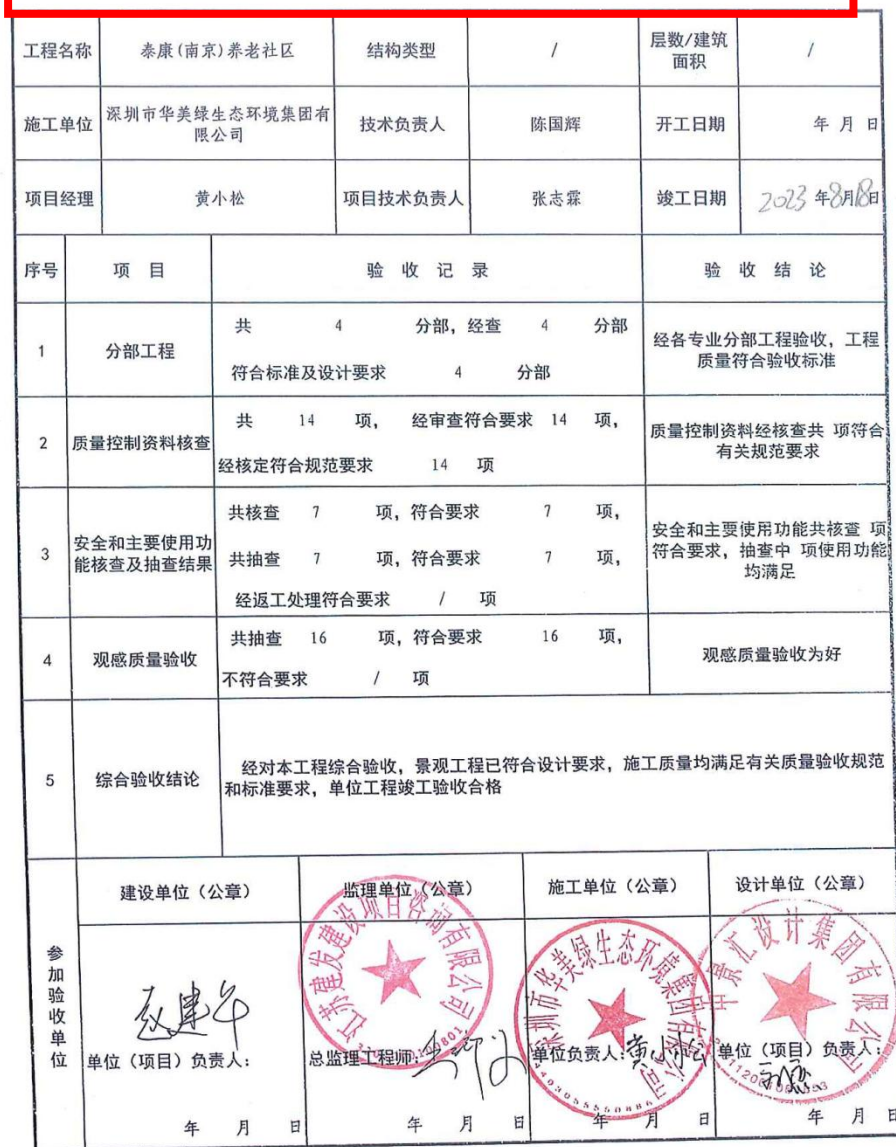 工程名称 泰康(南京)养老社区 结构类型 / 层数/建筑面积 /
施工单位 深圳市华美绿生态环境集团有限公司 技术负责人 陈国辉 开工日期 年 月 日
项目经理 黄小松 项目技术负责人 张志霖 竣工日期 2023年8月18日
序号 项 目 验 收 记 录 验 收 结 论
1 分部工程
共 4 分部, 经查 4 分部
符合标准及设计要求 4 分部
经各专业分部工程验收, 工程
质量符合验收标准
2 质量控制资料核查
共 14 项, 经审查符合要求 14 项,
经核定符合规范要求 14 项
质量控制资料经核查共 项符合
有关规范要求
3 安全和主要使用功
能核查及抽查结果
共核查 7 项, 符合要求 7 项,
共抽查 7 项, 符合要求 7 项,
经返工处理符合要求 / 项
安全和主要使用功能共核查 项
符合要求, 抽查中 项使用功能
均满足
4 观感质量验收
共抽查 16 项, 符合要求 16 项,
不符合要求 / 项
观感质量验收为好
5 综合验收结论
经对本工程综合验收, 景观工程已符合设计要求, 施工质量均满足有关质量验收规范
和标准要求, 单位工程竣工验收合格
参加验收单位
建设单位（公章） 监理单位（公章） 施工单位（公章） 设计单位（公章）
江苏建发建设项目咨询有限公司
深圳市华美绿生态环境集团有限公司
中景汇设计集团有限公司
单位（项目）负责人: 总监理工程师: 单位负责人: 黄小松 单位（项目）负责人:
年 月 日 年 月 日 年 月 日 年 月 日